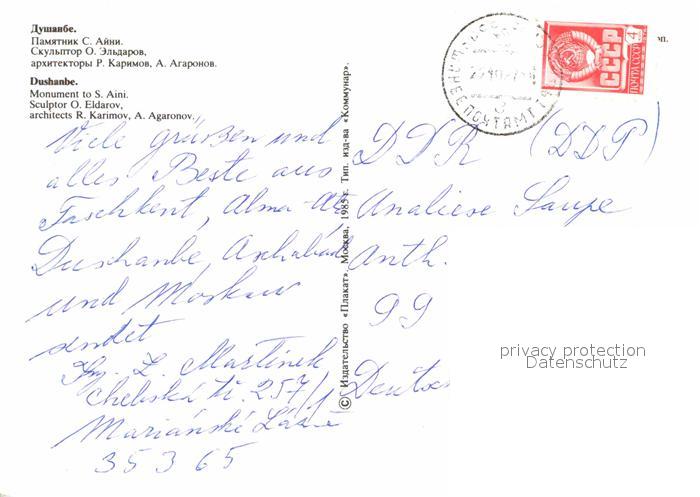 Душанбе.
Памятник С. Айни.
Скульптор О. Эльдаров,
архитекторы Р. Каримов, А. Агаронов.
Dushanbe.
Monument to S. Aini.
Sculptor O. Eldarov,
architects R. Karimov, A. Agaronov.
Viele grüßen und
alles Beste aus
Taschkent, Alma-Ata
Duschanbe, Aschabad
und Moskau
sendet
Ing. L. Martinek
Chebská tř. 257/1
Mariánské Lázně
35365
© Издательство «Плакат». Москва, 1985 г. Тип. изд-ва «Коммунар».
СССР
4
ПОЧТА СССР
ПОЧТАМТ
DDR (DDP)
Analiese Saupe
Anth.
99
Deutsc
privacy protection
Datenschutz